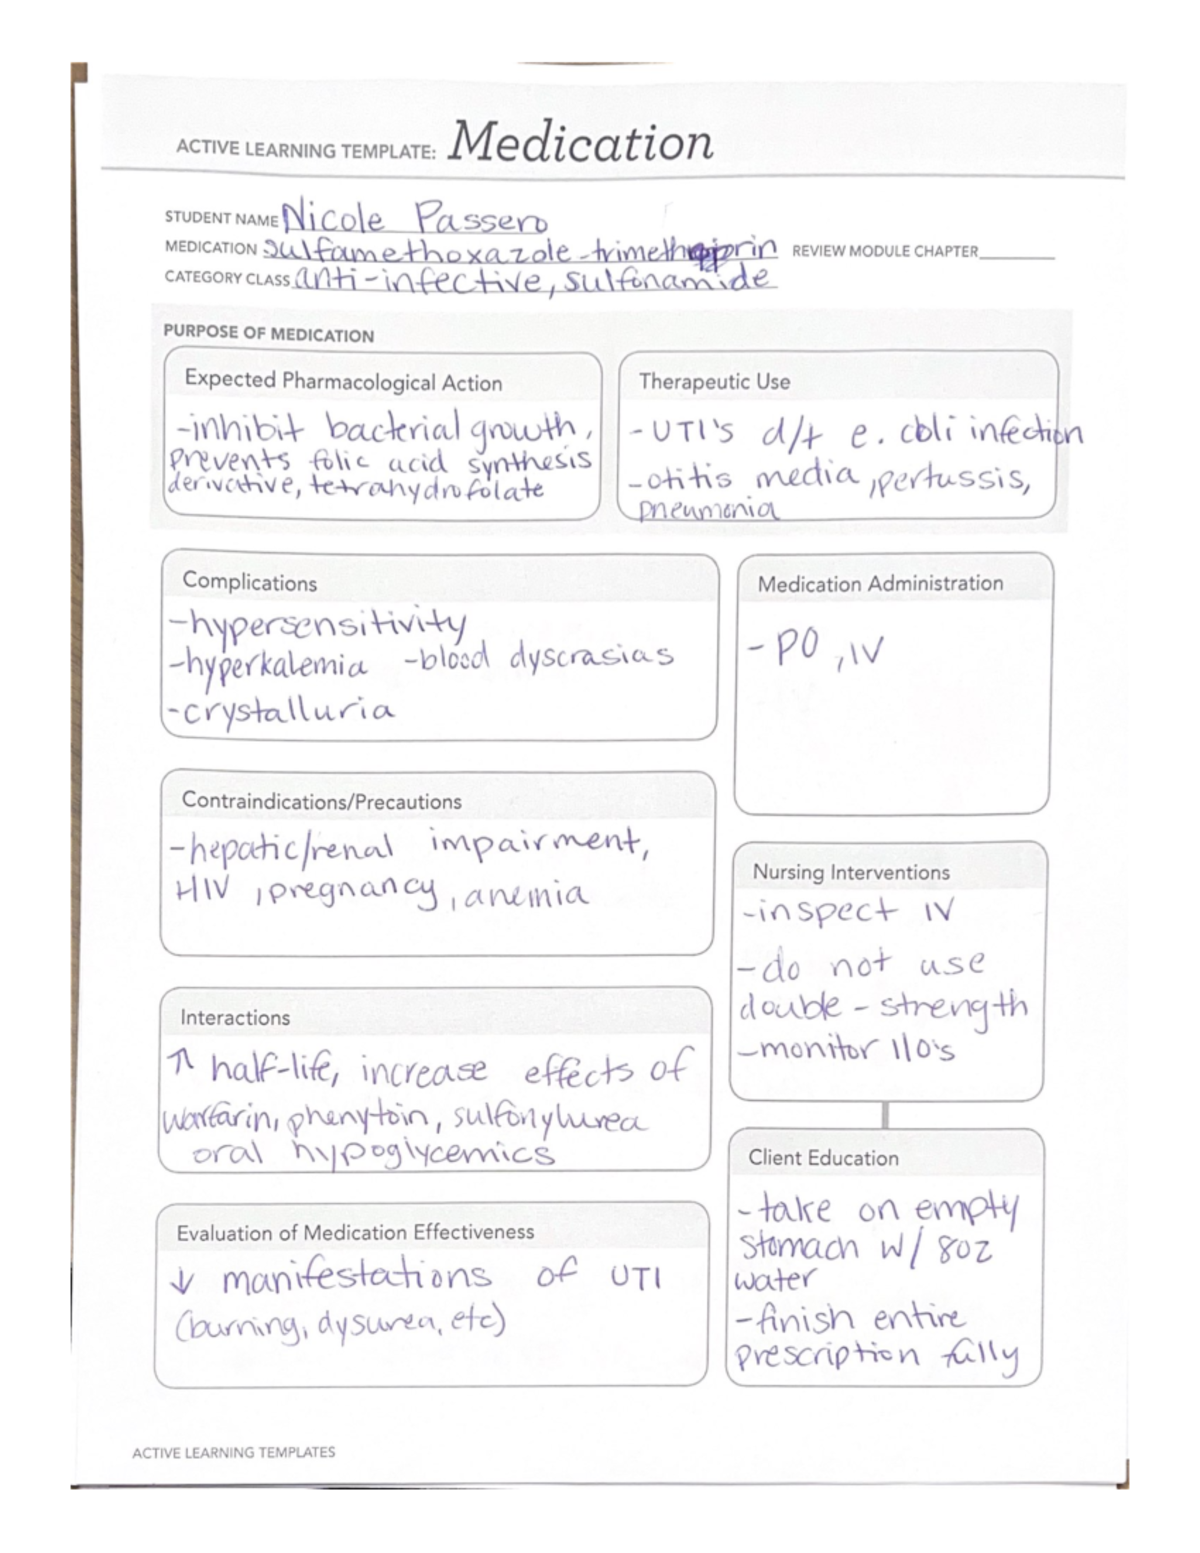 ACTIVE LEARNING TEMPLATE: Medication
STUDENT NAME Nicole Passero
MEDICATION sulfamethoxazole-trimethoprin REVIEW MODULE CHAPTER
CATEGORY CLASS anti-infective, sulfonamide
PURPOSE OF MEDICATION
Expected Pharmacological Action
-inhibit bacterial growth,
prevents folic acid synthesis
derivative, tetrahydrofolate
Therapeutic Use
- UTI's d/t e. coli infection
-otitis media, pertussis,
pneumonia
Complications
-hypersensitivity
-hyperkalemia -blood dyscrasias
-crystalluria
Medication Administration
- PO, IV
Contraindications/Precautions
-hepatic/renal impairment,
HIV, pregnancy, anemia
Nursing Interventions
-inspect IV
-do not use
double-strength
-monitor I/O's
Interactions
↑ half-life, increase effects of
warfarin, phenytoin, sulfonylurea
oral hypoglycemics
Client Education
-take on empty
stomach w/ 8oz
water
-finish entire
prescription fully
Evaluation of Medication Effectiveness
↓ manifestations of UTI
(burning, dysurea, etc)
ACTIVE LEARNING TEMPLATES